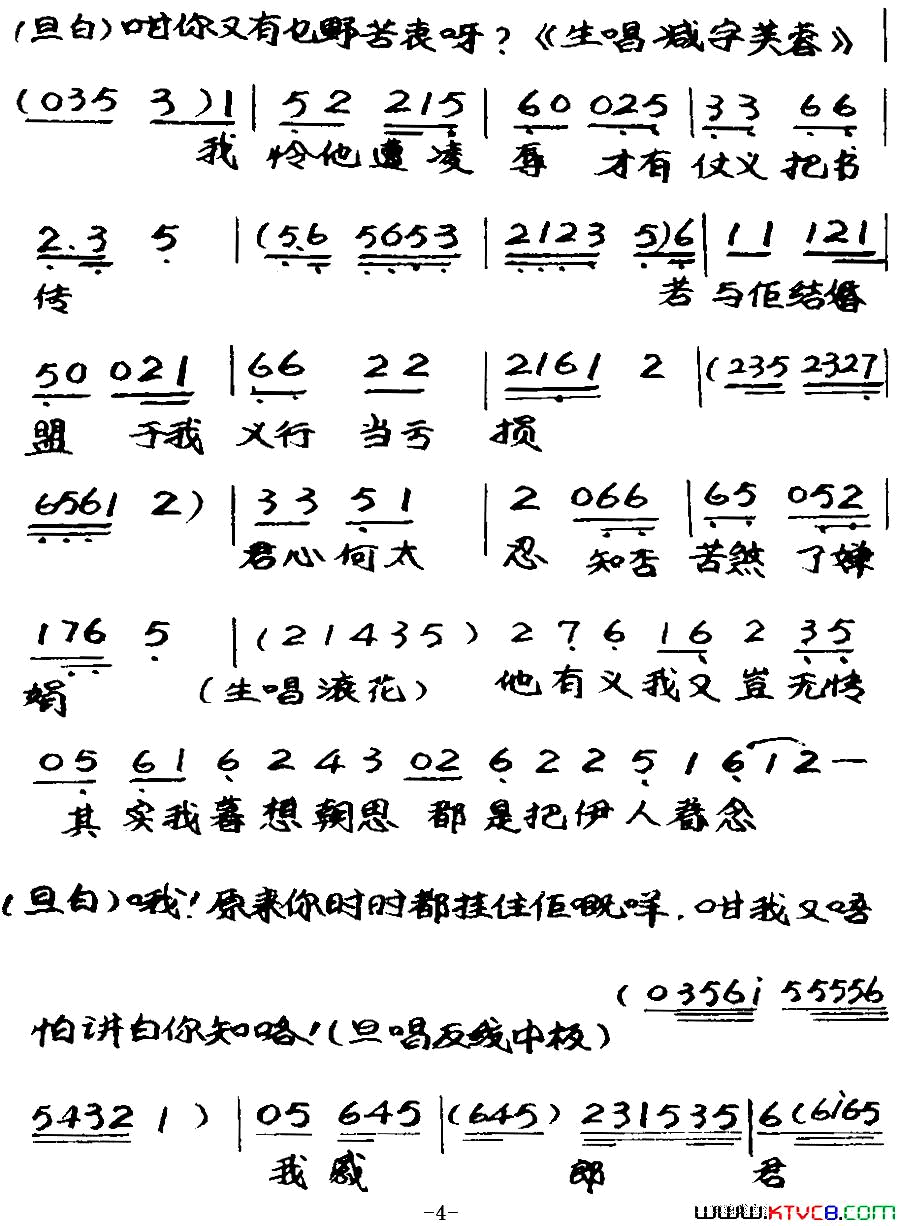 (旦白)咁你又有乜野苦衷呀?《生唱减字芙蓉》|
(035 3)1|52 215|60 025|33 66
我 怜他遭凌 辱 才有 仗义 把书
2.3 5 |(5.6 5653|2123 5)6|11 121|
传 若 与佢结婚
50 021|66 22|2161 2|(235 2327|
盟 于我 义行 当亏 损
6561 2)|33 51|2 066|65 052|
君心何太 忍 知否 苦煞 了婵
176 5 |(21435)2 7 6 16 2 35
娟 (生唱滚花) 他有义我又岂无情
05 61 6 2 4 3 02 6 2 2 5 1 6 1 2 —
其 实我暮想朝思 都是把伊人眷念
(旦白)哦!原来你时时都挂住佢嘅咩.咁我又唔
(0356i 55556
怕讲白你知咯!(旦唱反线中板)
5432 1 )|05 645|(645) 231535|6(6i65
我感 郎 君
-4-
WWW.KTVC8.COM